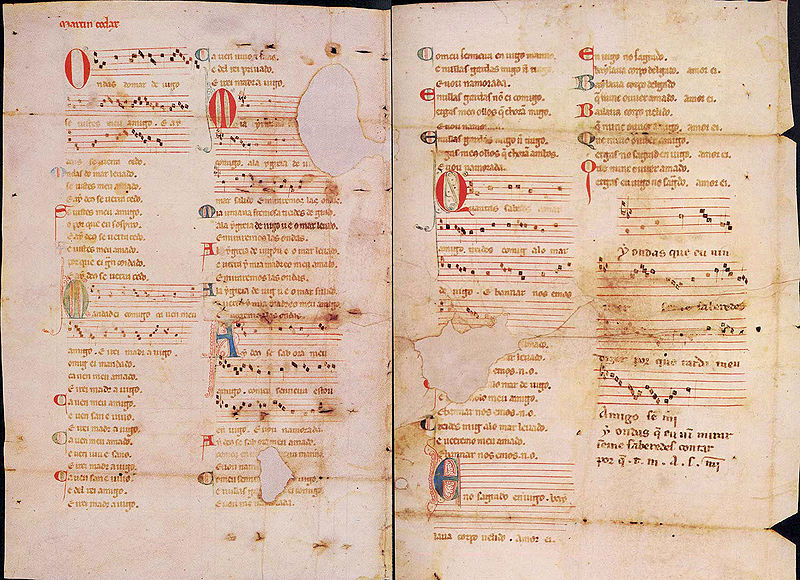 Martin codax
Ondas do mar de uigo
se uistes meu amigo. E ay
deus se uerra cedo.
Ondas do mar leuado.
se uistes meu amado.
E ay deus se uerra cedo.
Se uistes meu amigo.
o por que eu sospiro.
E ay deus se uerra cedo.
Se uistes meu amado.
por que ei gran coidado.
E ay deus se uerra cedo.
Mandad ei comigo ca uen meu
amigo. E irei madr a uigo.
Comig ei mandado.
ca uen meu amado.
E irei madr a uigo
Ca uen meu amigo.
e uen san e uiuo.
E irei madr a uigo.
Ca uen meu amado.
e uen uiu e sano.
E irei madr a uigo.
Ca uen san e uiuo.
e del rei amigo.
E irei madr a uigo.
Ca uen uiuo e sano.
e del rei priuado.
E irei madr a uigo.
Mia yrmana
comigo. ala ygreia de u
mar salido. E miraremos las ondas.
Mia irmana fremosa treides de grado.
ala ygreia de uigo u e o mar leuado.
E miraremos las ondas.
Ala ygreia de uigo u e o mar leuado.
e uerra y mia madre o meu amado.
E miraremos las ondas.
Ala ygreia de uigo u e o mar salido.
e uerra y mia madre o meu amigo.
E miraremos las ondas.
Ay deus se sab ora meu
amigo. comeu senneira estou
en uigo. E uou namorada.
Ay deus se sab ora meu amado.
comeu en uigo senneira manno.
E uou nam
Comeu senneira
E nullas gardas
E uou namorada.
Comeu senneira en uigo manno.
e nullas gardas migo non
E uou namorada.
E nullas gardas non ei comigo.
ergas meus ollos que choran migo.
E uou namo
E nullas gardas migo non trago.
ergas meus ollos que choran ambos.
E uou namorada.
Quantas sabedes amar
amigo. treides comig alo mar
de uigo. E bannar nos emos
leuado.
alo mar de uigo.
e ueeremo lo meu amigo.
E bannar nos emos. n. o.
Treides mig alo mar leuado.
e ueeremo meu amado.
E bannar nos emos. n. o.
Eno sagrado en uigo. bay
laua corpo uelido. amor ei.
En uigo no sagrado.
baylaua corpo delgado. amor ei.
Baylaua corpo delgado
que nunc ouuer amado. amor ei.
Bailaua corpo uelido.
que nunc ouuer amigo. amor ei.
Que nunc ouuer amigo.
ergas no sagrad en uigo. amor ei.
Que nunc ouuer amado.
ergas en uigo no sagrado. amor ei.
Ay ondas que eu uin
ueer se me saberedes
dizer por que tarda meu
Amigo se mi
Ay ondas que eu uin mirar
se me saberedes contar
por que. t. m. a. s. mi